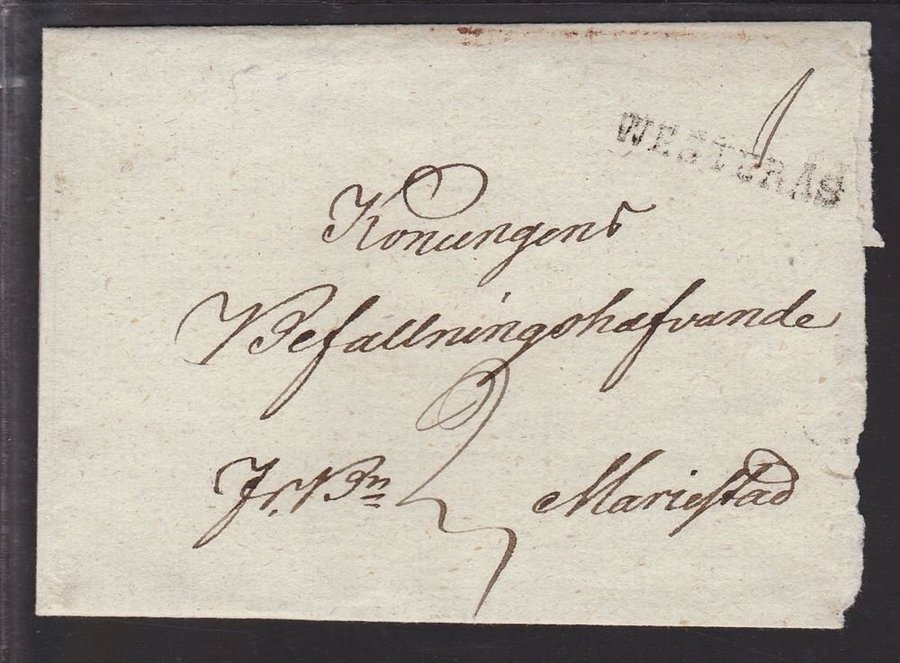 WESTERÅS
Konungens
Befallningshafvande
Fr. Bn Mariestad